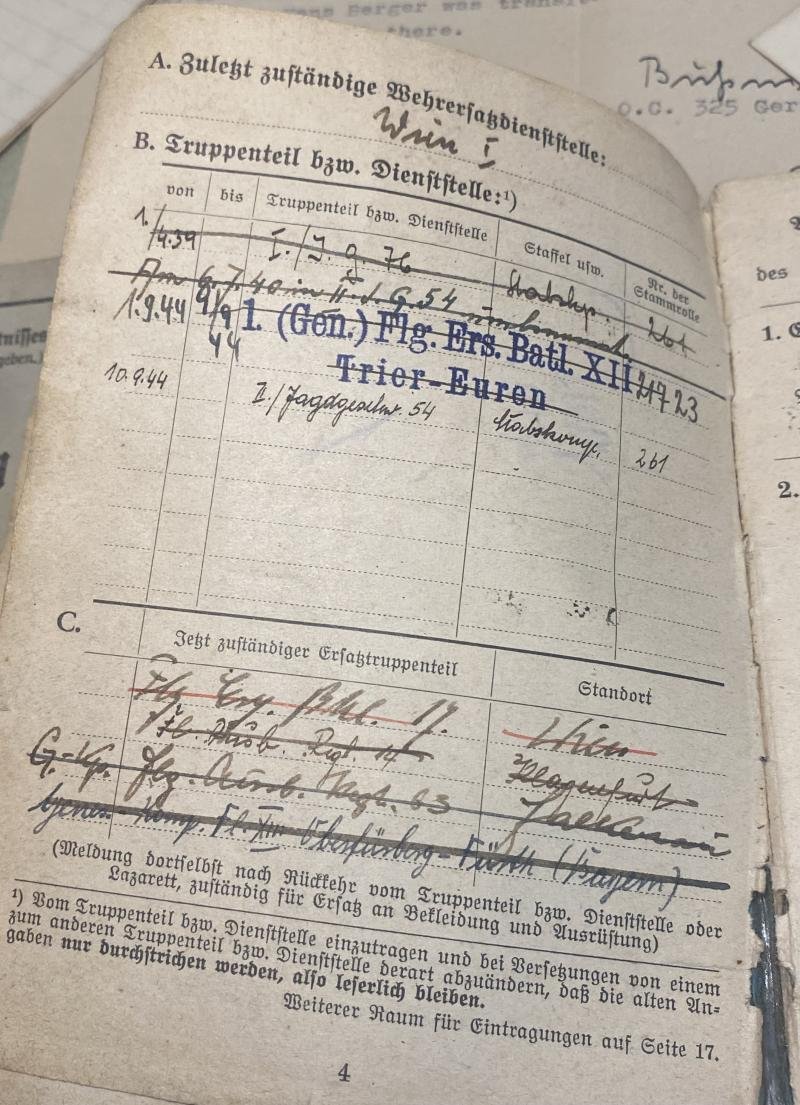 there.
O.C. 325 Ger
A. Zuletzt zuständige Wehrersatzdienststelle:
Wien I
B. Truppenteil bzw. Dienststelle:¹)
von bis Truppenteil bzw. Dienststelle Staffel usw. Nr. der Stammrolle
1./4.39 I./J.G. 76 Stabskp. 261
Am 6.7.40 in II.J.G.54 umbenannt.
1.9.44 9/9 44 1. (Gen.) Flg. Ers. Batl. XII 23
Trier-Euren
10.9.44 II/Jagdgeschw. 54 Stabskomp. 261
C.
Jetzt zuständiger Ersatztruppenteil Standort
Flg. 17. Wien
Ausb. Rgt. 14 Klagenfurt
G.-Kp. Flg. Ausb. Regt. 63
Genes.-Komp. Fl. XIII Oberfürberg-Fürth (Bayern)
(Meldung dortselbst nach Rückkehr vom Truppenteil bzw. Dienststelle oder
Lazarett, zuständig für Ersatz an Bekleidung und Ausrüstung)
¹) Vom Truppenteil bzw. Dienststelle einzutragen und bei Versetzungen von einem
zum anderen Truppenteil bzw. Dienststelle derart abzuändern, daß die alten An-
gaben nur durchstrichen werden, also leserlich bleiben.
Weiterer Raum für Eintragungen auf Seite 17.
4
des
1.
2.